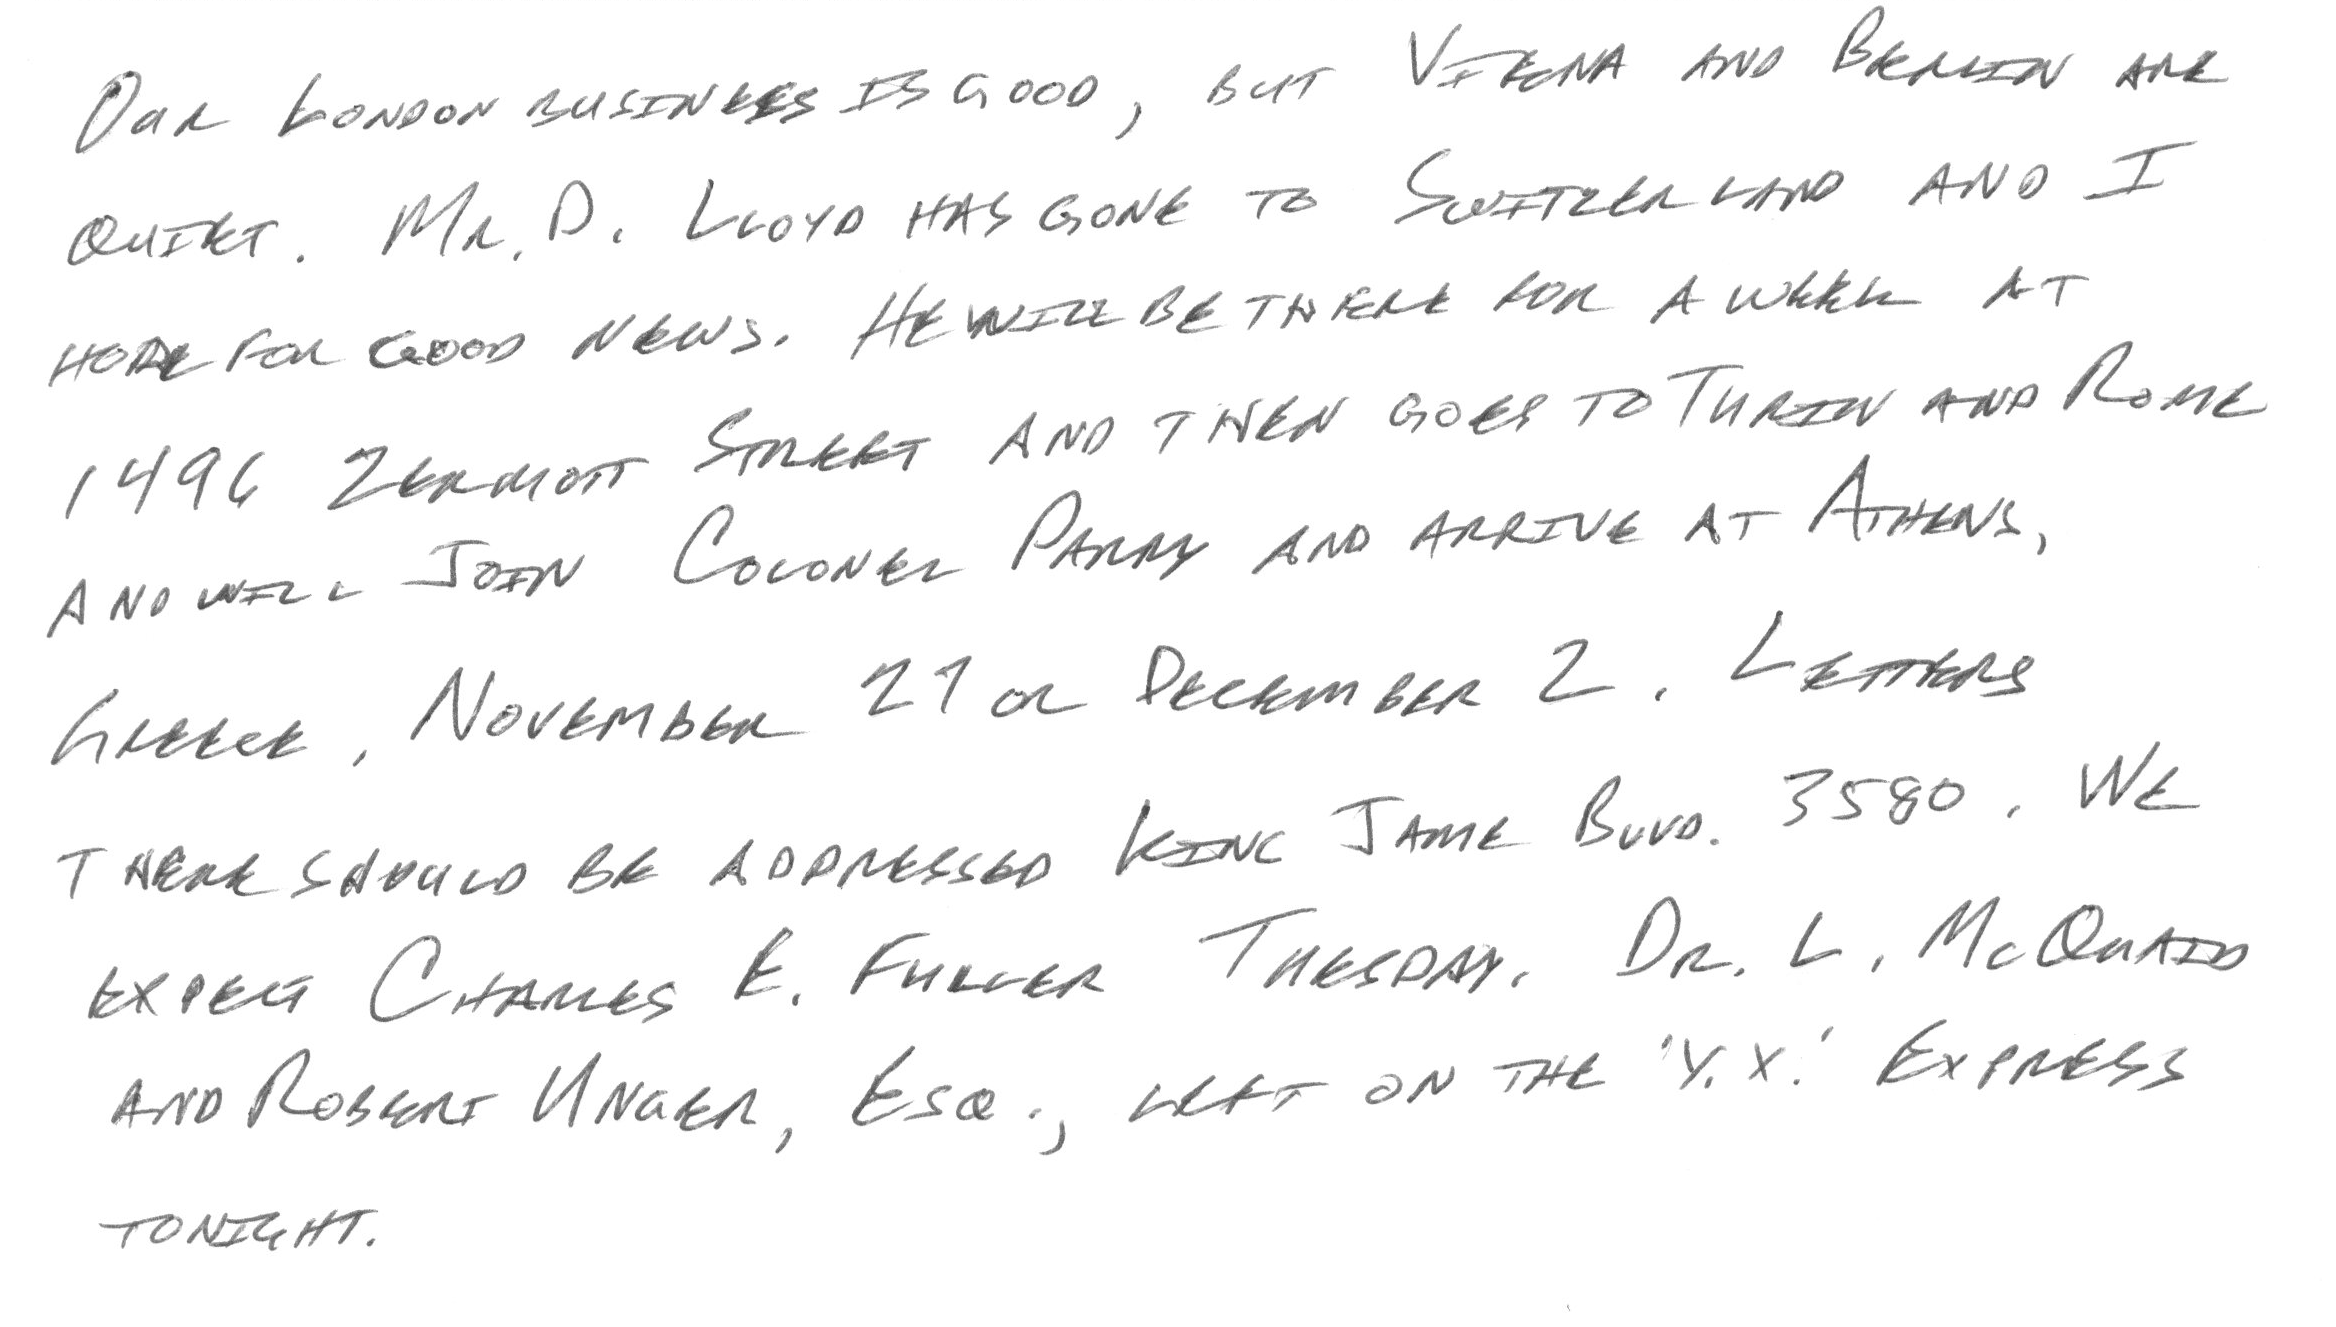 Our London business is good, but Vienna and Berlin are
quiet. Mr. D. Lloyd has gone to Switzerland and I
hope for good news. He will be there for a week at
1496 Zermott Street and then goes to Turin and Rome
and will join Colonel Parry and arrive at Athens,
Greece, November 27 or December 2. Letters
there should be addressed King Jame Blvd. 3580. We
expect Charles E. Fuller Tuesday. Dr. L. McQuaid
and Robert Unger, Esq., left on the 'Y.X.' Express
tonight.